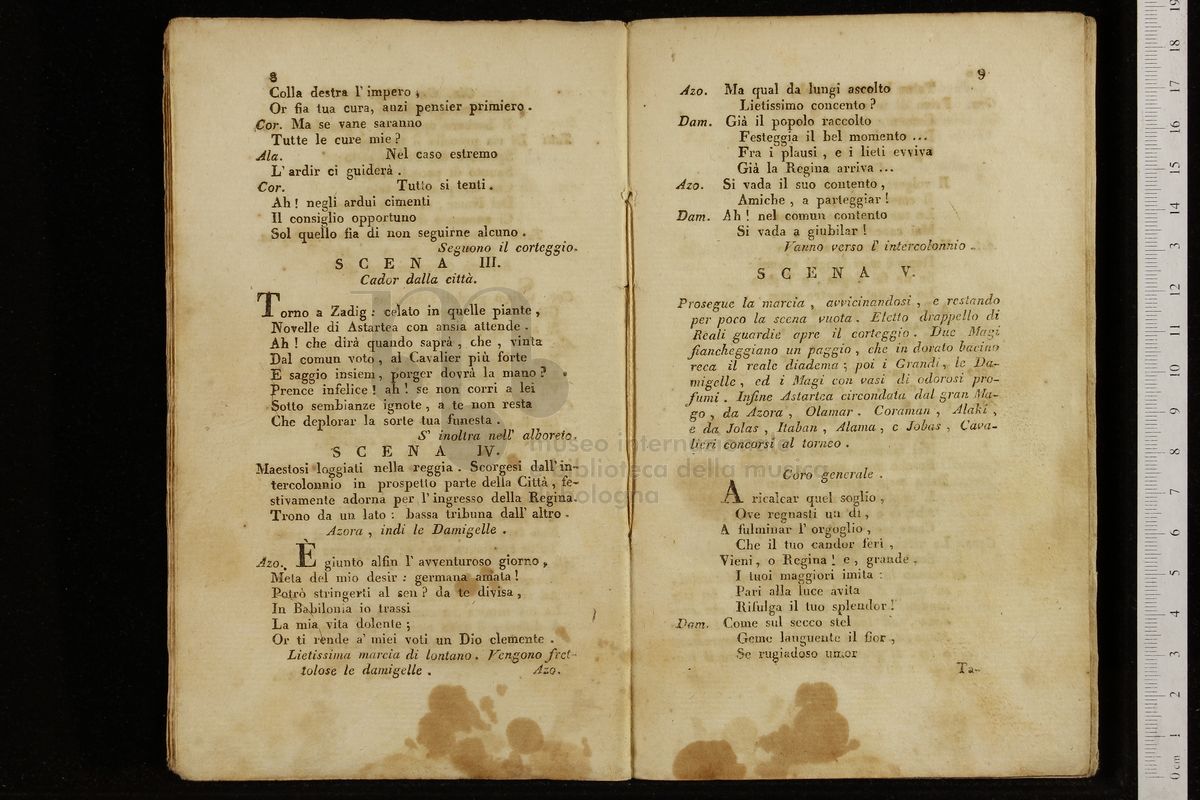 8
Colla destra l' impero,
Or fia tua cura, anzi pensier primiero.
Cor. Ma se vane saranno
Tutte le cure mie?
Ala. Nel caso estremo
L' ardir ci guiderà.
Cor. Tutto si tenti.
Ah! negli ardui cimenti
Il consiglio opportuno
Sol quello fia di non seguirne alcuno.
Seguono il corteggio.
SCENA III.
Cador dalla città.
Torno a Zadig: celato in quelle piante,
Novelle di Astartea con ansia attende.
Ah! che dirà quando saprà, che, vinta
Dal comun voto, al Cavalier più forte
E saggio insiem, porger dovrà la mano?
Prence infelice! ah! se non corri a lei
Sotto sembianze ignote, a te non resta
Che deplorar la sorte tua funesta.
S' inoltra nell' alboreto.
SCENA IV.
Maestosi loggiati nella reggia. Scorgesi dall' in-
tercolonnio in prospetto parte della Città, fe-
stivamente adorna per l' ingresso della Regina.
Trono da un lato: bassa tribuna dall' altro.
Azora, indi le Damigelle.
Azo. È giunto alfin l' avventuroso giorno,
Meta del mio desir: germana amata!
Potrò stringerti al sen? da te divisa,
In Babilonia io trassi
La mia vita dolente;
Or ti rende a' miei voti un Dio clemente.
Lietissima marcia di lontano. Vengono fret-
tolose le damigelle.
Azo.
9
Azo. Ma qual da lungi ascolto
Lietissimo concento?
Dam. Già il popolo raccolto
Festeggia il bel momento ...
Fra i plausi, e i lieti evviva
Già la Regina arriva ...
Azo. Si vada il suo contento,
Amiche, a parteggiar!
Dam. Ah! nel comun contento
Si vada a giubilar!
Vanno verso l' intercolonnio.
SCENA V.
Prosegue la marcia, avvicinandosi, e restando
per poco la scena vuota. Eletto drappello di
Reali guardie apre il corteggio. Due Magi
fiancheggiano un paggio, che in dorato bacino
reca il reale diadema; poi i Grandi, le Da-
migelle, ed i Magi con vasi di odorosi pro-
fumi. Infine Astartea circondata dal gran Ma-
go, da Azora, Olamar. Coraman, Alaki,
e da Jolas, Itaban, Alama, e Jobas, Cava-
lieri concorsi al torneo.
Coro generale.
A ricalcar quel soglio,
Ove regnasti un dì,
A fulminar l' orgoglio,
Che il tuo candor ferì,
Vieni, o Regina! e, grande,
I tuoi maggiori imita:
Pari alla luce avita
Rifulga il tuo splendor!
Dam. Come sul secco stel
Geme languente il fior,
Se rugiadoso umor
Ta-
museo internazionale
e biblioteca della musica
bologna
0 cm 1 2 3 4 5 6 7 8 9 10 11 12 13 14 15 16 17 18 19